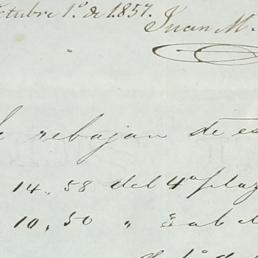 ctubre 1º de 1857.
Juan M.
e rebajan de es
14.58 del 4º plaz
10,50 " 3 ab